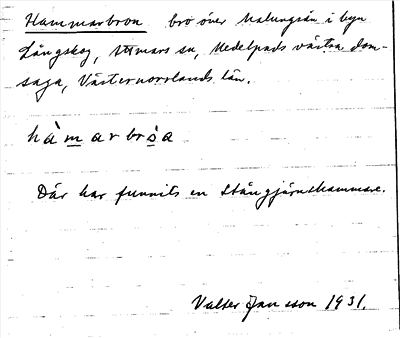 Hammarbron bro över Malungsån i byn
Långskog, Attmars sn, Medelpads västra dom-
saga, Västernorrlands län.
hàmarbròa
Där har funnits en stångjärnshammare.
Valter Jansson 1931.